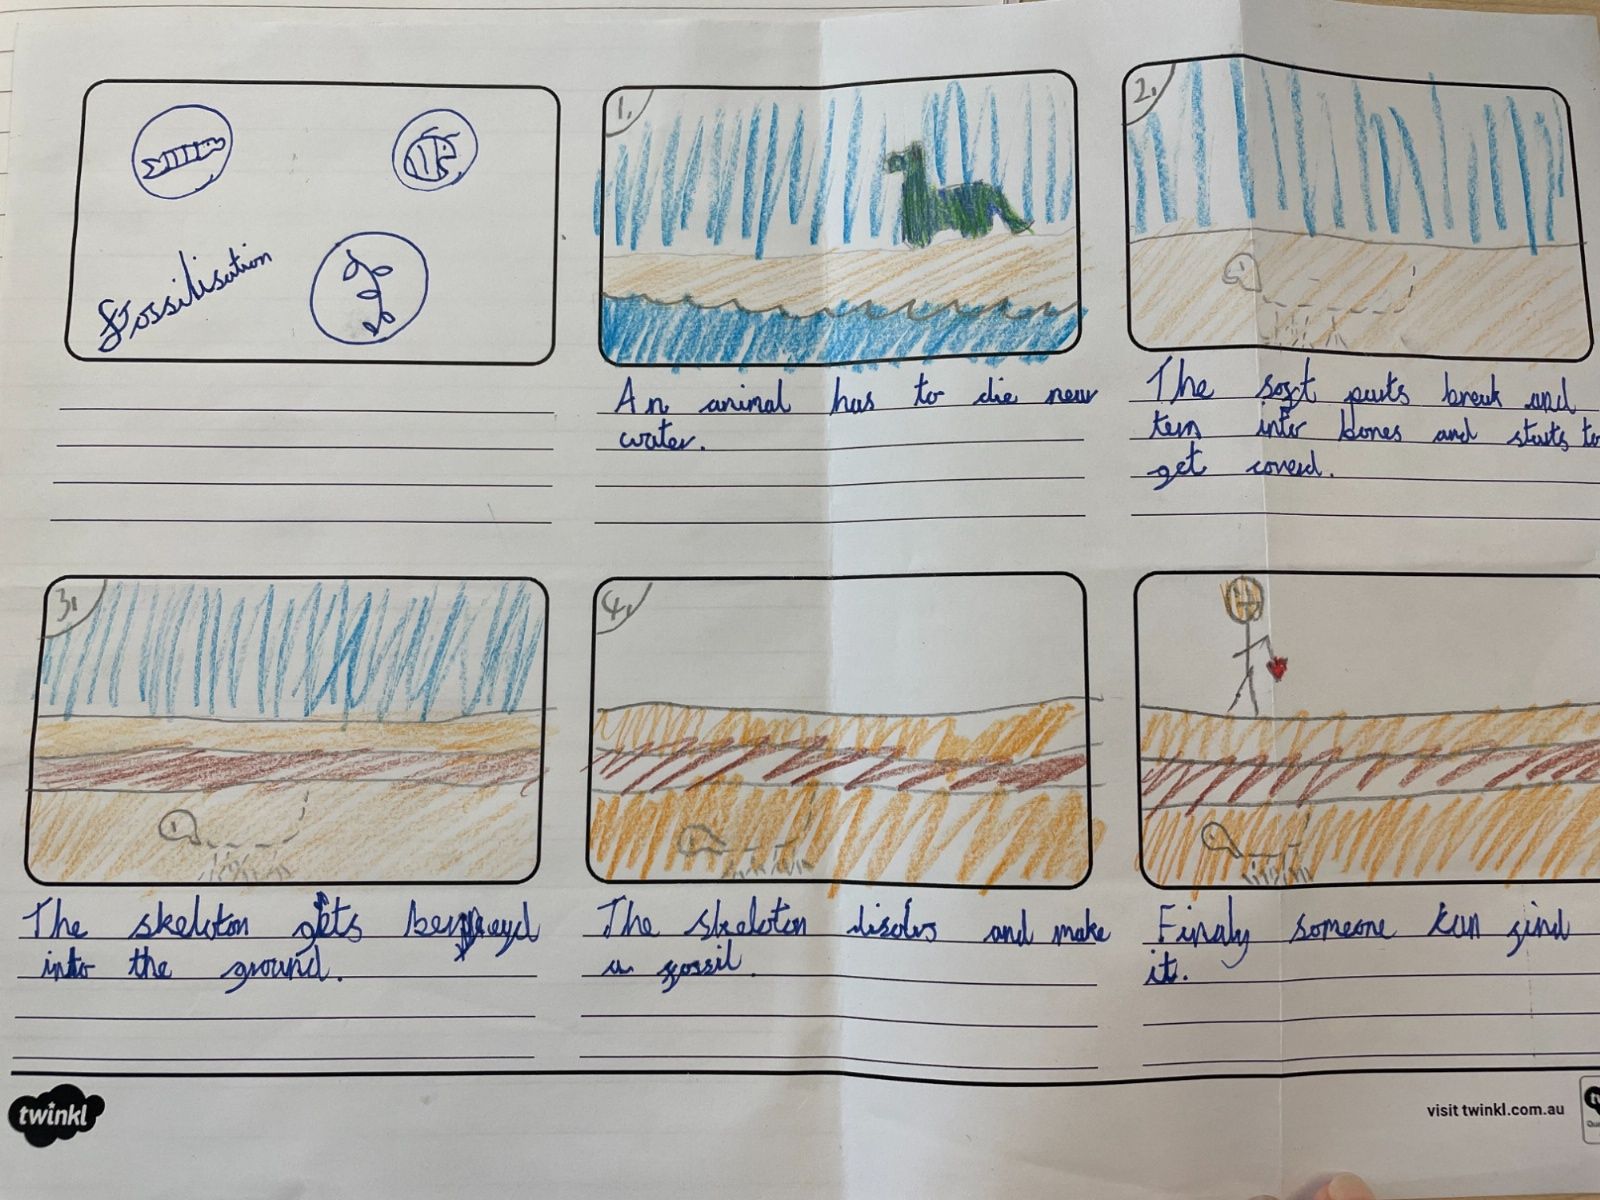 Fossilisation
1.
An animal has to die near
water.
2.
The soft parts break and
tern into bones and starts to
get coverd.
3.
The skeloton gets
into the ground.
4.
The skeloton disolvs and make
a fossil.
Finaly someone kan find
it.
twinkl
visit twinkl.com.au